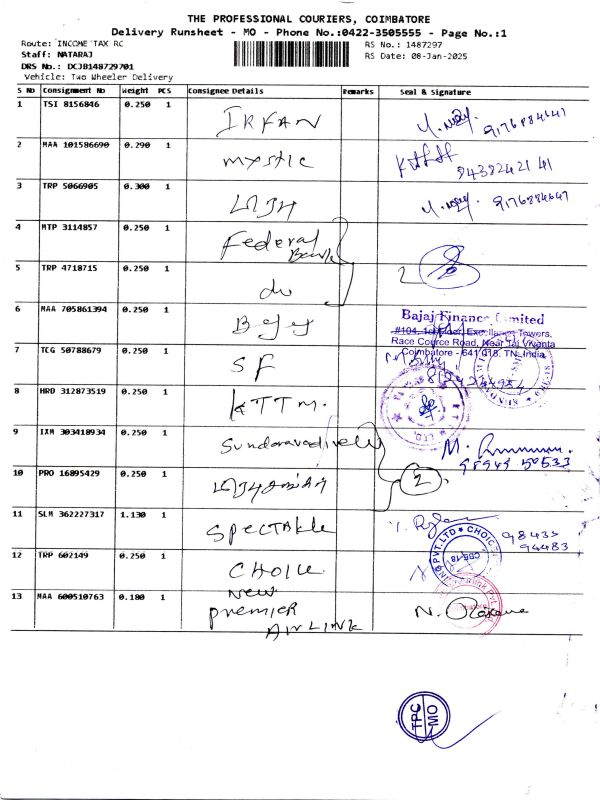 THE PROFESSIONAL COURIERS, COIMBATORE
Delivery Runsheet - MO - Phone No.:0422-3505555 - Page No.:1
Route: INCOME TAX RC
RS No.: 1487297
Staff: NATARAJ
RS Date: 08-Jan-2025
DRS No.: DCJB148729701
Vehicle: Two Wheeler Delivery
S No Consignment No Weight PCS Consignee Details Remarks Seal & Signature
1 TSI 8156846 0.250 1 IRFAN 9176884647
2 MAA 101586690 0.290 1 mystic 9438242141
3 TRP 5066905 0.300 1 9176884647
4 MTP 3114857 0.250 1 Federal Bank
5 TRP 4718715 0.250 1 do 2
6 MAA 705861394 0.250 1 Bajaj
Bajaj Finance Limited
#104, 1st Floor, Excellence Towers,
Race Cource Road, Near Taj Vivanta
Coimbatore - 641 018. TN. India
7 TCG 50788679 0.250 1 SF
8 HRD 312873519 0.250 1 KTTM.
9 IXM 303418934 0.250 1 Sundaravadivelu M.
10 PRO 16895429 0.250 1 2
11 SLM 362227317 1.130 1 SPECTAKle 98433 94483
12 TRP 602149 0.250 1 CHOICE
13 MAA 600510763 0.180 1 New
Premier
AIRLINK
TPC
MO